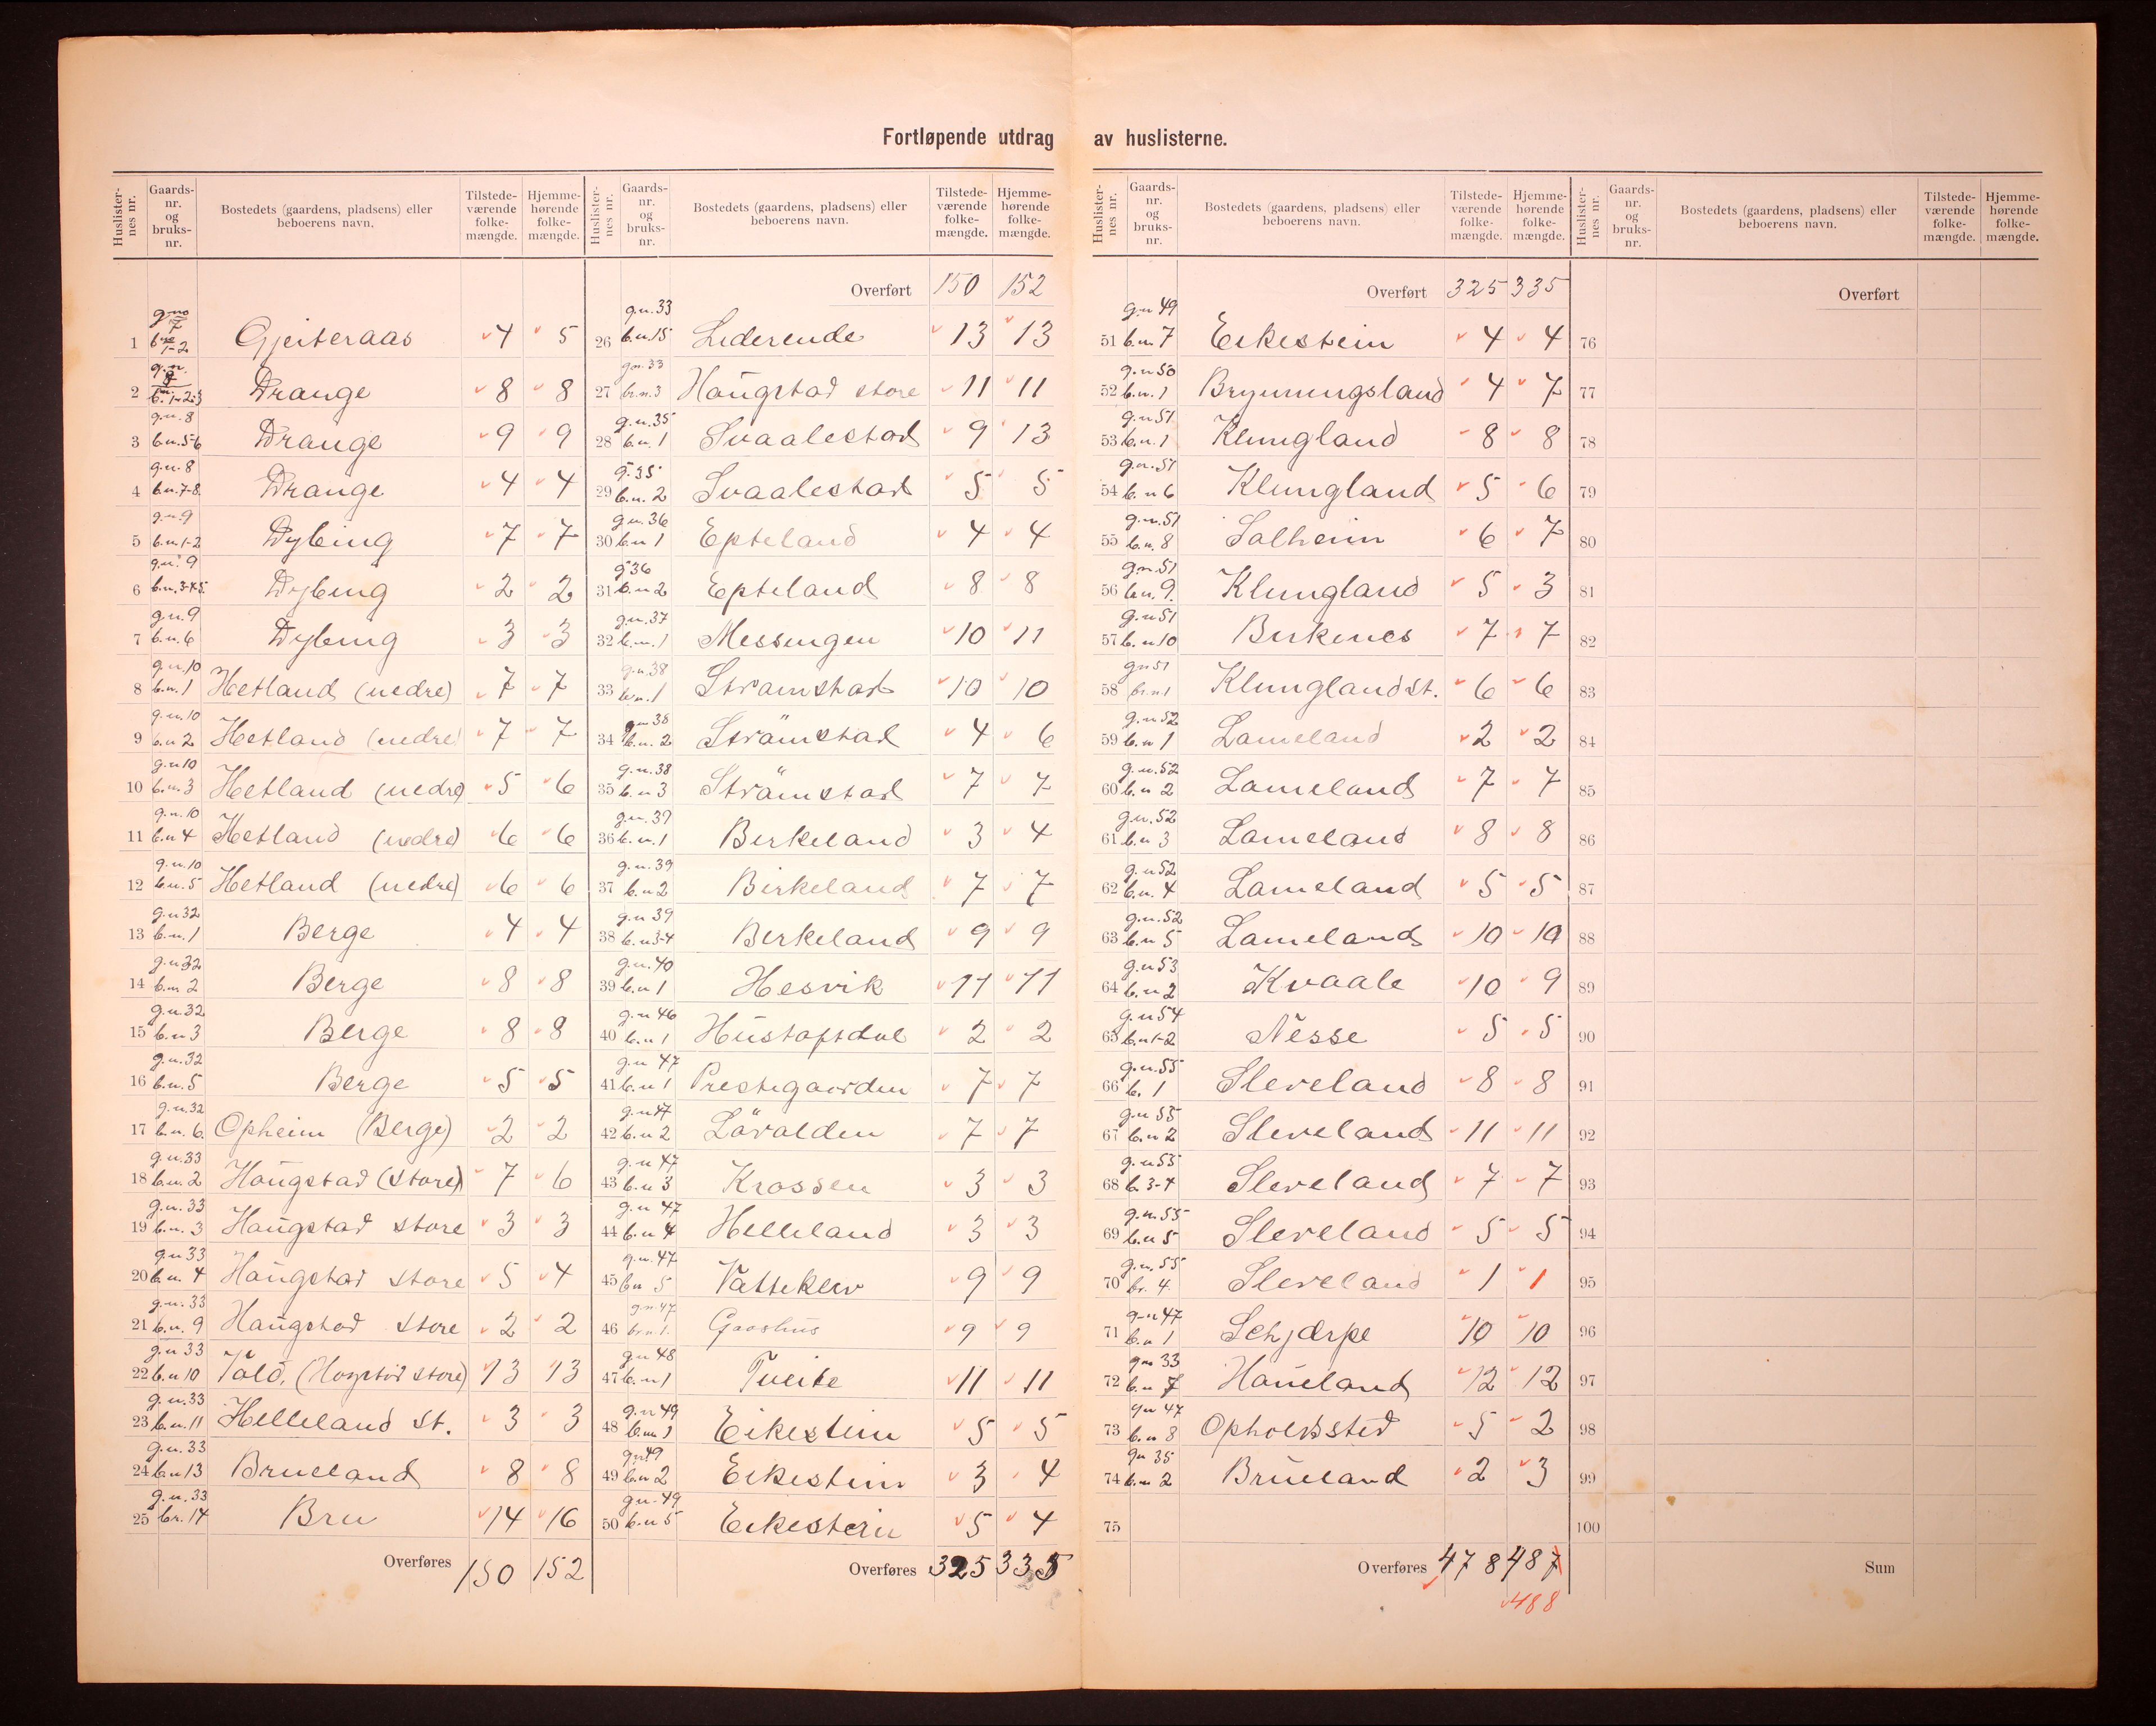 Fortløpende utdrag av huslisterne.
Huslisternes nr. Gaards-nr. og bruks-nr. Bostedets (gaardens, pladsens) eller beboerens navn. Tilstede-værende folke-mængde. Hjemme-hørende folke-mængde.
1 g.no 7 b.no 1-2 Gjeiteraas 4 5
2 g.n. 8 b.n. 1-2-3 Drange 8 8
3 g.n. 8 b.n. 5-6 Drange 9 9
4 g.n. 8 b.n. 7-8 Drange 4 4
5 g.n. 9 b.n. 1-2 Dybing 7 7
6 g.n. 9 b.n. 3-4-5 Dybing 2 2
7 g.n. 9 b.n. 6 Dybing 3 3
8 g.n. 10 b.n. 1 Hetland (nedre) 7 7
9 g.n. 10 b.n 2 Hetland (nedre) 7 7
10 g.n 10 b.n. 3 Hetland (nedre) 5 6
11 g.n. 10 b.n 4 Hetland (nedre) 6 6
12 g.n. 10 b.n. 5 Hetland (nedre) 6 6
13 g.n 32 b.n. 1 Berge 4 4
14 g.n 32 b.n. 2 Berge 8 8
15 g.n. 32 b.n 3 Berge 8 8
16 g.n. 32 b.n. 5 Berge 5 5
17 g.n. 32 b.n. 6. Opheim (Berge) 2 2
18 g.n. 33 b.n. 2 Haugstad (store) 7 6
19 g.n. 33 b.n. 3 Haugstad store 3 3
20 g.n 33 b.n. 4 Haugstad store 5 4
21 g.n. 33 b.n. 9 Haugstad store 2 2
22 g.n 33 b.n 10 (Hogstad store) 13 13
23 g.n. 33 b.n. 11 Helleland st. 3 3
24 g.n. 33 b.n 13 Brueland 8 8
25 g.n. 33 br. 14 Bru 14 16
Overføres 150 152
Overført 150 152
26 g.n. 33 b.n. 15 Liderende 13 13
27 gn. 33 br.n. 3 Haugstad store 11 11
28 g.n. 35 b.n. 1 Svaalestad 9 13
29 g. 35 b.n. 2 Svaalestad 5 5
30 g.n. 36 b.n 1 Epteland 4 4
31 g 36 b.n 2 Epteland 8 8
32 g.n. 37 b.n. 1 Messingen 10 11
33 g.n. 38 b.n. 1 Strämstad 10 10
34 gn 38 b.n. 2 Strämstad 4 6
35 g.n. 38 b.n 3 Strämstad 7 7
36 g.n. 39 b.n. 1 Birkeland 3 4
37 g.n. 39 b.n 2 Birkeland 7 7
38 g.n 39 b.n 3-4 Birkeland 9 9
39 g.n. 40 b.n 1 Hesvik 11 11
40 g.n 46 b.n 1 Hustoftdal 2 2
41 g.n 47 b.n 1 Prestegaarden 7 7
42 g.n 47 b.n 2 Lävolden 7 7
43 g.n 47 b.n 3 Krossen 3 3
44 g.n 47 b.n 4 Helleland 3 3
45 g.n. 47 bn 5 Vatteklev 9 9
46 g.n. 47 br.n 1. Gaashus 9 9
47 g.n 48 b.n 1 Tveite 11 11
48 g.n 49 b.n. 1 Eikestein 5 5
49 g.n 49 b.n 2 Eikestein 3 4
50 g.n. 49 b.n 5 Eikestein 5 4
Overføres 325 335
Overført 325 335
51 g.n 49 b.n 7 Eikestein 4 4
52 g.n 50 b.n. 1 Brynningsland 4 7
53 g.n 51 b.n. 1 Klungland 8 8
54 g.n. 51 b.n 6 Klungland 5 6
55 g.n. 51 b.n. 8 Solheim 6 7
56 g.n. 51 b.n. 9. Klungland 5 3
57 g.n 51 b.n 10 Birkenes 7 7
58 gn 51 br.n 1 Klungland st. 6 6
59 g.n 52 b.n 1 Lameland 2 2
60 g.n. 52 b.n 2 Lameland 7 7
61 g.n. 52 b.n 3 Lameland 8 8
62 g.n 52 b.n. 4 Lameland 5 5
63 g.n. 52 b.n 5 Lameland 10 10
64 g.n 53 b.n 2 Kvaale 10 9
65 g.n 54 b.n 1-2 Nesse 5 5
66 g.n. 55 b. 1 Sleveland 8 8
67 g.n 55 b.n 2 Sleveland 11 11
68 g.n 55 b. 3-4 Sleveland 7 7
69 g.n. 55 b.n 5 Sleveland 5 5
70 g.n. 55 br. 4. Sleveland 1 1
71 g.n 47 b.n 1 Schjærpe 10 10
72 gn 33 b.n 7 Haueland 12 12
73 gn 47 b.n 8 Opholdssted 5 2
74 gn 35 b.n 2 Brueland 2 3
75
Overføres 478 487
488
Overført
76
77
78
79
80
81
82
83
84
85
86
87
88
89
90
91
92
93
94
95
96
97
98
99
100
Sum